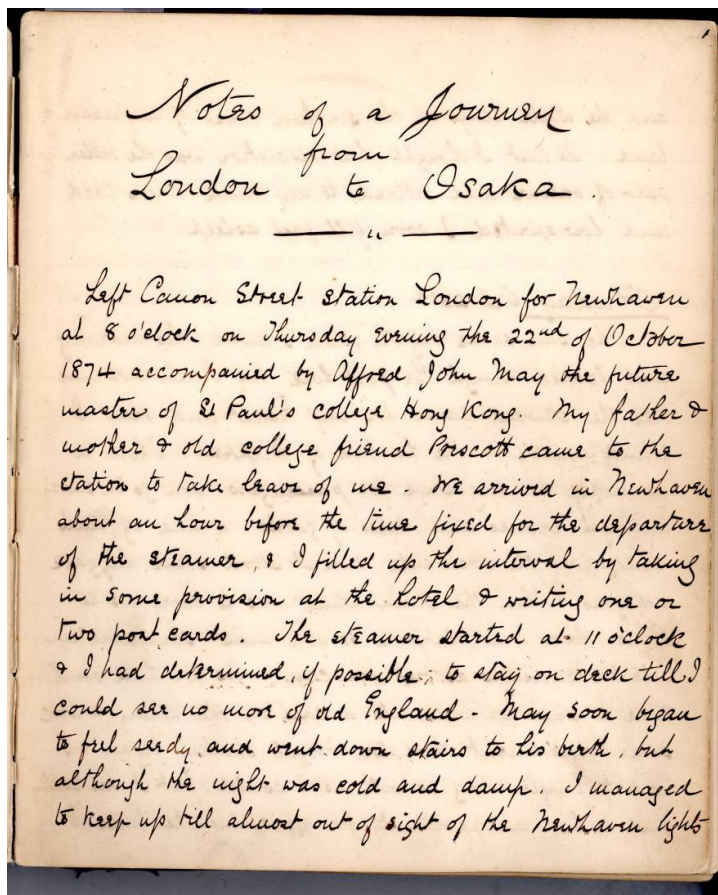 Notes of a Journey
from
London to Osaka.
Left Canon Street station London for Newhaven
at 8 o'clock on Thursday evening the 22nd of October
1874 accompanied by Alfred John May the future
master of St Paul's college Hong Kong. My father &
mother & old college friend Prescott came to the
station to take leave of me. We arrived in Newhaven
about an hour before the time fixed for the departure
of the steamer, & I filled up the interval by taking
in some provision at the hotel & writing one or
two post cards. The steamer started at 11 o'clock
& I had determined, if possible, to stay on deck till I
could see no more of old England - May soon began
to feel seedy and went down stairs to his berth, but
although the night was cold and damp. I managed
to keep up till almost out of sight of the Newhaven lights